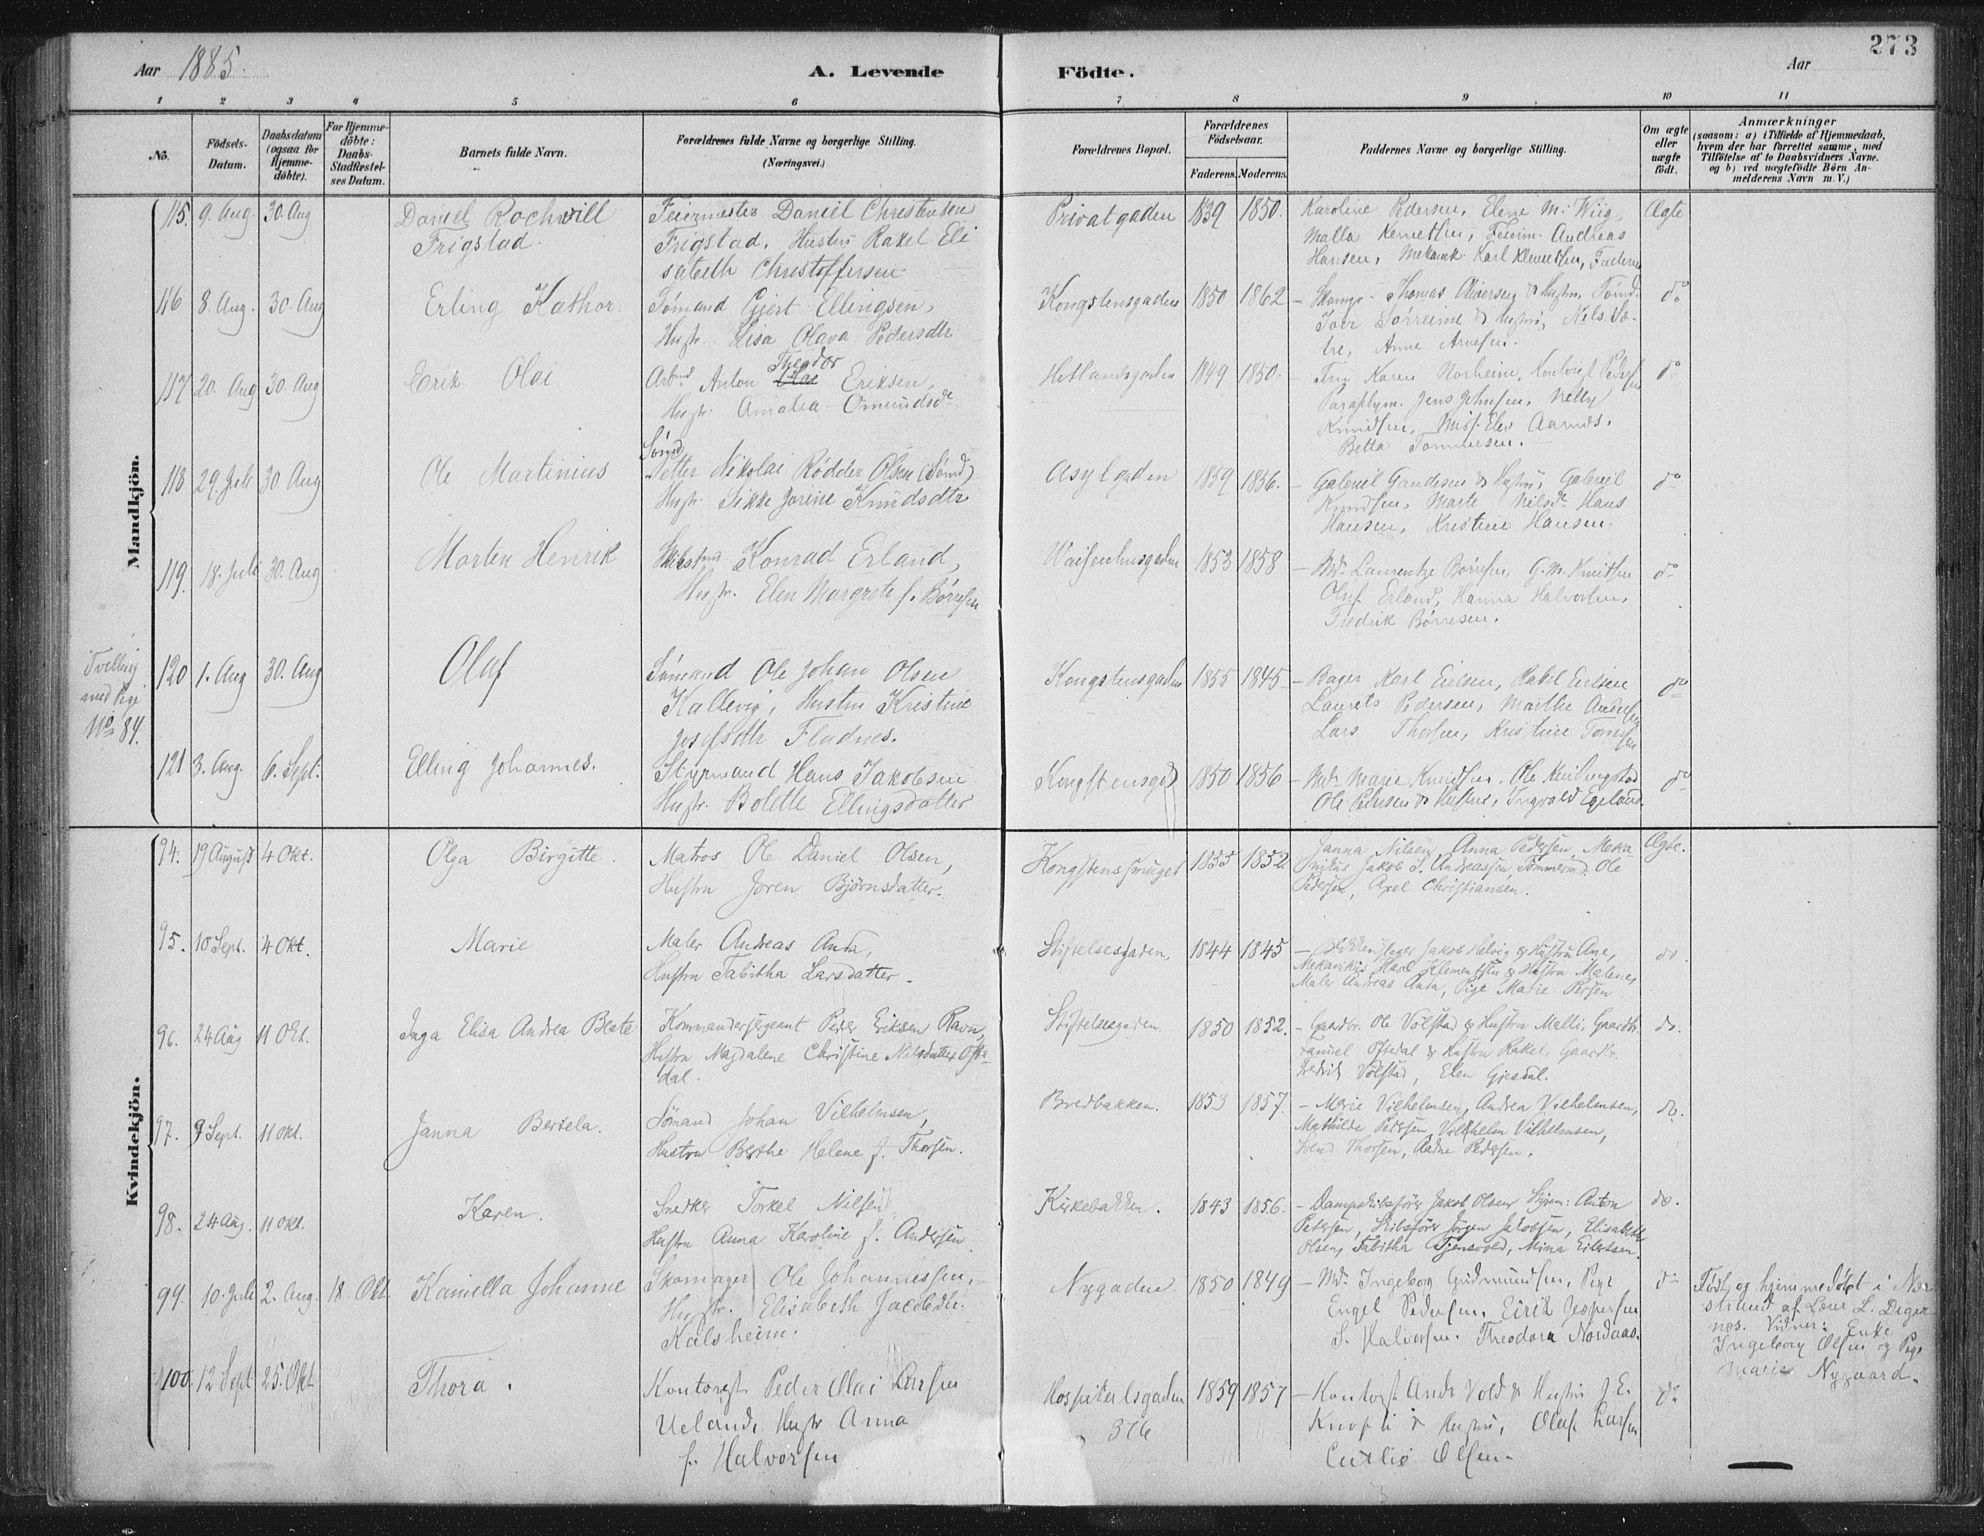 Aar 1885.
A. Levende Födte.
Aar
273
1 2 3 4 5 6 7 8 9 10 11
No.
Födsels-Datum.
Daabsdatum (ogsaa for Hjemme-döbte).
For Hjemme-döbte: Daabs-Stadfæstel-ses Datum.
Barnets fulde Navn.
Forældrenes fulde Navne og borgerlige Stilling.
(Næringsvei.)
Forældrenes Bopæl.
Forældrenes Födselsaar.
Faderens. Moderens.
Faddernes Navne og borgerlige Stilling.
Om ægte eller uægte födt.
Anmærkninger
(saasom: a) i Tilfælde af Hjemmedaab, hvem der har forrettet samme, med Tilföielse af to Daabsvidners Navne. og b) ved uægtefödte Börn An-melderens Navn m. V.)
Mandkjön.
115. 9. Aug. 30. Aug Daniel Rochwill Feiermester Daniel Christensen Privatgaden 1839 1850. Karoline Pedersen, Elene M. Wiig, Ægte
Frigstad. Frigstad, Hustru Rakel Eli Malla Kemethsen, Feierm. Andreas
sabeth Christoffersen Hansen, Mekanik. Karl Klemetsen, Faderen
116 8. Aug. 30. Aug Erling Kathor. Sømand Gjert Ellingsen, Kongstensgaden 1850 1862 Thomas Olversen & Hustru, Tømd. do
Hustr. Lisa Olava Pedersdtr Iver Sørreime & Hustru, Nils Sæ-
tre, Anne Arnesen.
117 20. Aug 30. Aug Erik Olai Arbmd Anton Olai Theodor Eriksen, Hetlandsgaden 1849 1850. Karen Norheim, Pedersen do
Hustr. Amalia Omundsdtr Paraplym. Jens Johnsen, Nelly
Knudsen, Miss. Elev Aarnes.
Betta Tønnesen.
118 29. Juli 30 Aug Ole Martinius Sømd Petter Nikolai Rødder Olsen (Sømd) Asylgaden 1859 1856. Gabriel Gaudesen & Hustru, Gabriel do
Hustr. Sikke Jorine Knudsdtr Knudsen, Marte Nilsdr Hans
Hansen, Kristine Hansen.
119. 18. Juli 30. Aug Morten Henrik Konrad Erland, Waisenhusgaden 1853 1858 Md. Laurentze Børresen, G. M. Knutsen do
Hustr. Elen Margrete f. Børresen Oluf Erland, Hanna Halvorsen,
Fredrik Børresen.
Tvilling med Pige No 84.
120 1. Aug 30. Aug Olaf Sømand Ole Johan Olsen Kongstensgaden 1855 1845 Bager Karl Eielsen, Rakel Eielsen do
Kallevig, Hustru Kristine Laurits Pedersen, Marthe Andersen
Josefsdtr Fladnes. Lars Thorsen, Kristine Tønnesen
121 3. Aug. 6. Sept. Elling Johannes. Styrmand Hans Jakobsen Kongstensgd 1850 1856 Md. Marie Knudsen, Ole do
Hustr. Bolette Ellingsdatter Ole Pedersen & Hustru, Ingvald Egeland.
Kvindekjön.
94. 19 August 4 Okt. Olga Birgitte. Matros Ole Daniel Olsen, Kongstenssmuget 1855 1852 Janna Nilsen, Anna Pedersen, Meka- Ægte.
Hustru Joren Bjørnsdatter. nikus Jakob S. Andreassen, Tømmermd. Ole
Pedersen, Axel Christiansen.
95. 10 Sept. 4 Okt. Marie Maler Andreas Anda, Stiftelsesgaden, 1844 1845 Jakob Helvig & Hustru Ane, do.
Hustru Tabitha Larsdatter. Mekanikus Karl Klementsen & Hustru Malene,
Maler Andreas Anda, Pige Marie Persen
96. 24 Aug 11 Okt. Inga Elisa Andrea Beate Kommandersergeant Peder Eriksen Ravn, Stiftelsesgaden. 1850 1852. Gaardbr. Ole Vølstad & Hustru Malli, Gaardbr. do.
Hustru Magdalene Christine Nilsdatter Ofte- Samuel Oftedal & Hustru Rakel, Gaardbr.
dal. Fredrik Vølstad, Elen Gjesdal.
97. 9 Sept. 11 Okt. Janna Bertela. Sømand Johan Vilhelmsen, Bredbakken. 1853 1857. Marie Vilhelmsen, Andrea Vilhelmsen, do.
Hustru Berthe Helene f. Thorsen. Mathilde Pedersen, Vilhelm Vilhelmsen,
Svend Thorsen, Aadne Pedersen.
98. 24 Aug. 11 Okt. Karen. Snedker Torkel Nilsen Kirkebakken. 1843 1856. Dampskibsfører Jakob Olsen, Styrm: Anton do.
Hustru Anna Karoline f. Andersen Petersen, Skibsfører Jørgen Jakobsen, Elisabeth
Olsen, Tabitha Tjensvold, Mina Eilertsen.
99. 10. Juli 2. Aug. 18. Okt Kamilla Johanne Skomager Ole Johannessen, Nygaden 1850 1849 Md. Ingeborg Gudmundsen, Pige do Født og hjemmedøbt i Nær-
Hustr. Elisabeth Jacobdtr. Engel Pedersen, Eirik Jespersen strand af L. Deger
Kalsheim. S. Halvorsen. Theodora Nordaas. nes. Vidner: Enke
Ingeborg Olsen og Pige
Marie Nygaard.
100. 12 Sept 25. Okt Thora. Kontorist Peder Mai Larsen Hospitalsgaden 1859 1857 Kontorist Ands Vold & Hustru J. E. do
Ueland, Hustr Anna 376 & Hustru, Olaf Larsen
f. Halvorsen Olsen.